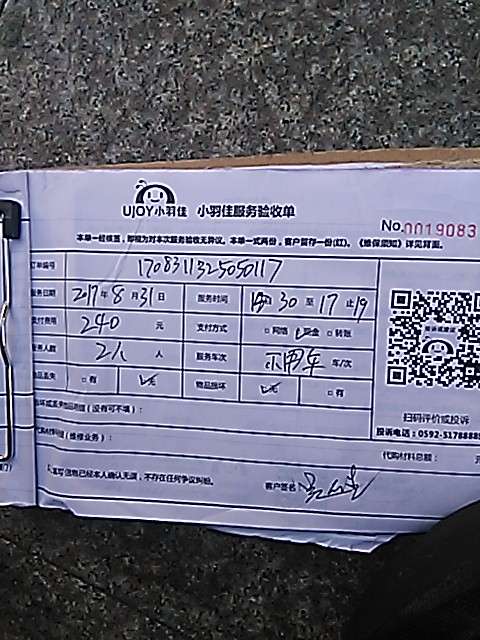 UJOY小羽佳 小羽佳服务验收单
No.0019083
本单一经核签，即视为对本次服务验收无异议。本单一式两份，客户留存一份(红)。《维保须知》详见背面。
订单号 1708311325050117
服务日期 2017年8月31日 服务时间 30至17止19
支付费用 240 元 支付方式 □网络 现金 □转账
务人数 2人 人 服务车次 不用车 车/次
物品丢失 □有 无 物品损坏 无 □有
(没有可不填)：
扫码评价或投诉
投诉电话：0592-5178888
(维修业务)：
代购材料总额： 元
信息已经本人确认无误，不存在任何争议纠纷。 客户签名